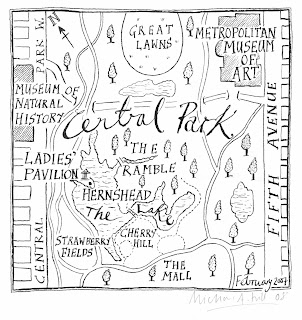 PARK W.
N
GREAT
LAWNS
METROPOLITAN
MUSEUM
OF
ART
MUSEUM OF
NATURAL
HISTORY
Central Park.
LADIES'
PAVILION
THE
RAMBLE
HERNSHEAD
The Lake
CHERRY
HILL
STRAWBERRY
FIELDS
THE
MALL
CENTRAL
FIFTH AVENUE
February 2007